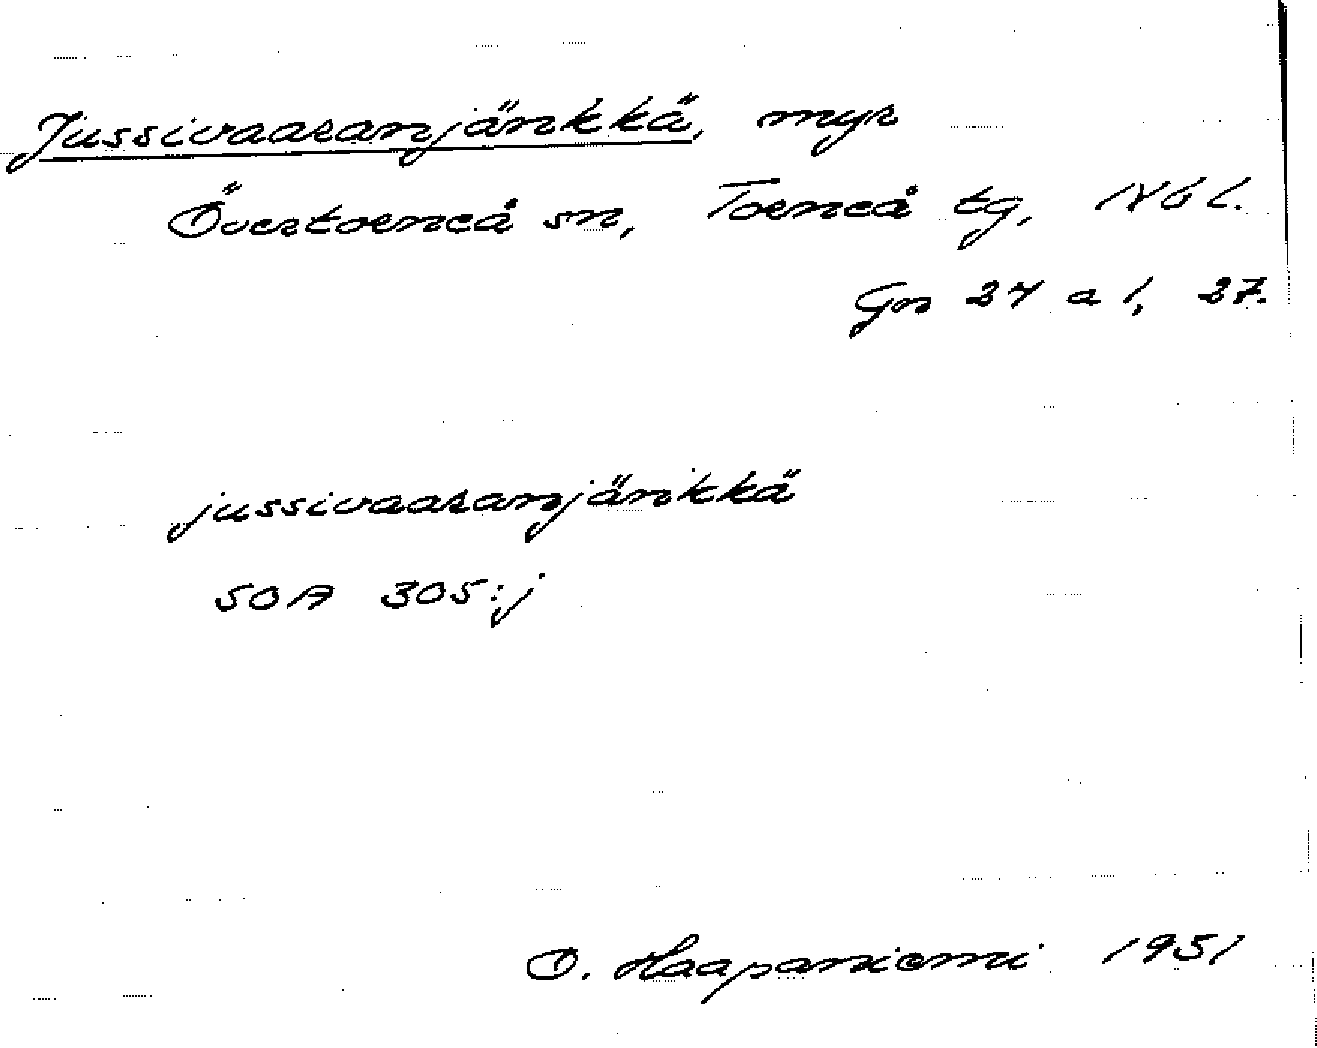 Jussivaaranjänkkä, myr
Övertorneå sn, Torneå tg, Nbl.
Gn 24 a 1, 27.
jussivaaranjänkkä
SOA 305:j
O. Haapaniemi 1951